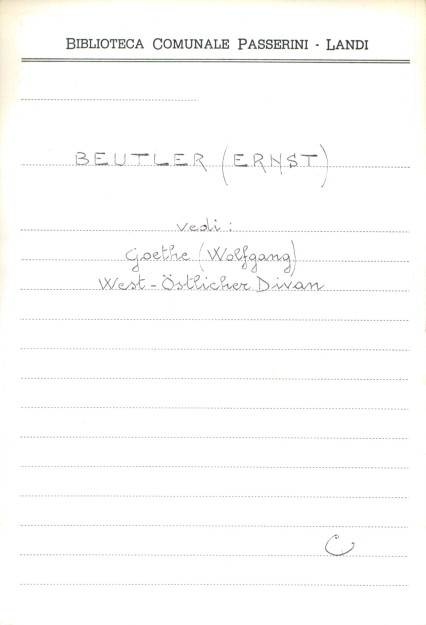 BIBLIOTECA COMUNALE PASSERINI - LANDI
BEUTLER (ERNST)
vedi:
Goethe (Wolfgang)
West-Östlicher Divan
C